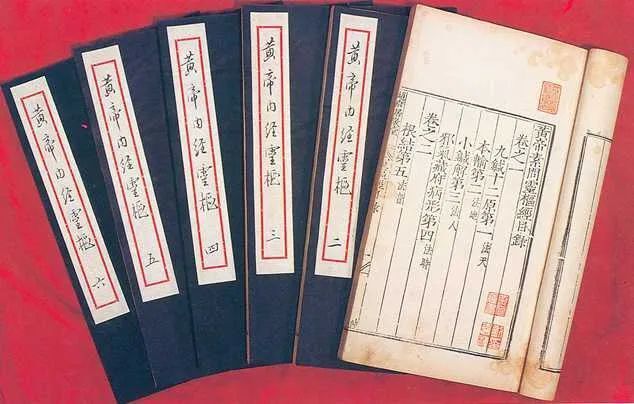 黃帝素問靈樞經目錄
卷之一
九鍼十二原第一 法天
本輸第二 法地
小鍼解第三 法人
邪氣藏府病形第四 法時
卷之二
根結第五 法音
黄帝内经靈樞 二
黄帝内经靈樞 三
黄帝内经靈樞 四
黄帝内经靈樞 五
黄帝内经靈樞 六